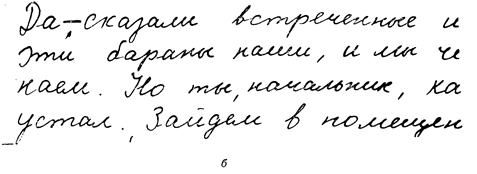 Да,-сказали встреченные и
эти бараны наши, и мы че
наем. Но ты, начальник, ка
устал. Зайдем в помещен
б